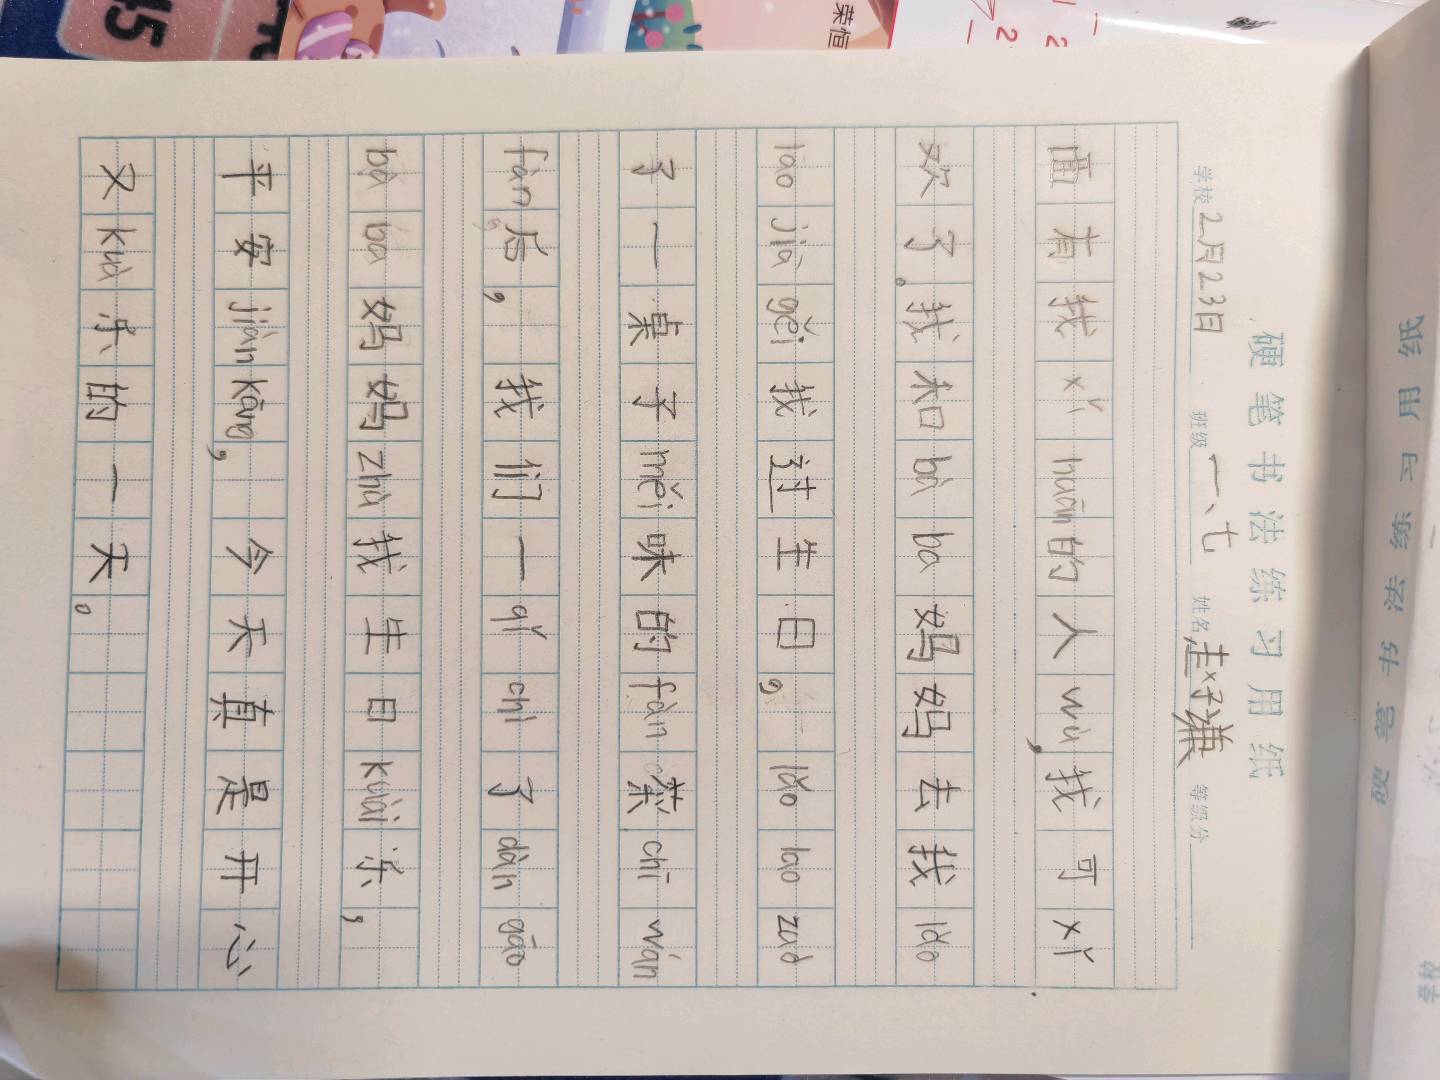 硬笔书法练习用纸
学校 2月23日 班级 一、七 姓名 赵子谦 等级分
面有我xǐ huān的人wù,我可xǐ
欢了。我和bà ba妈妈去我lǎo
lao jiā gěi我过生日,lǎo lao zuò
了一桌子měi味的fàn菜chī wán
fàn后,我们一qǐ chī了dàn gāo
bà ba妈妈zhù我生日kuài乐,
平安jiàn kāng,今天真是开心
又kuài乐的一天。
硬笔书法练习用纸
学校
荣恒
45